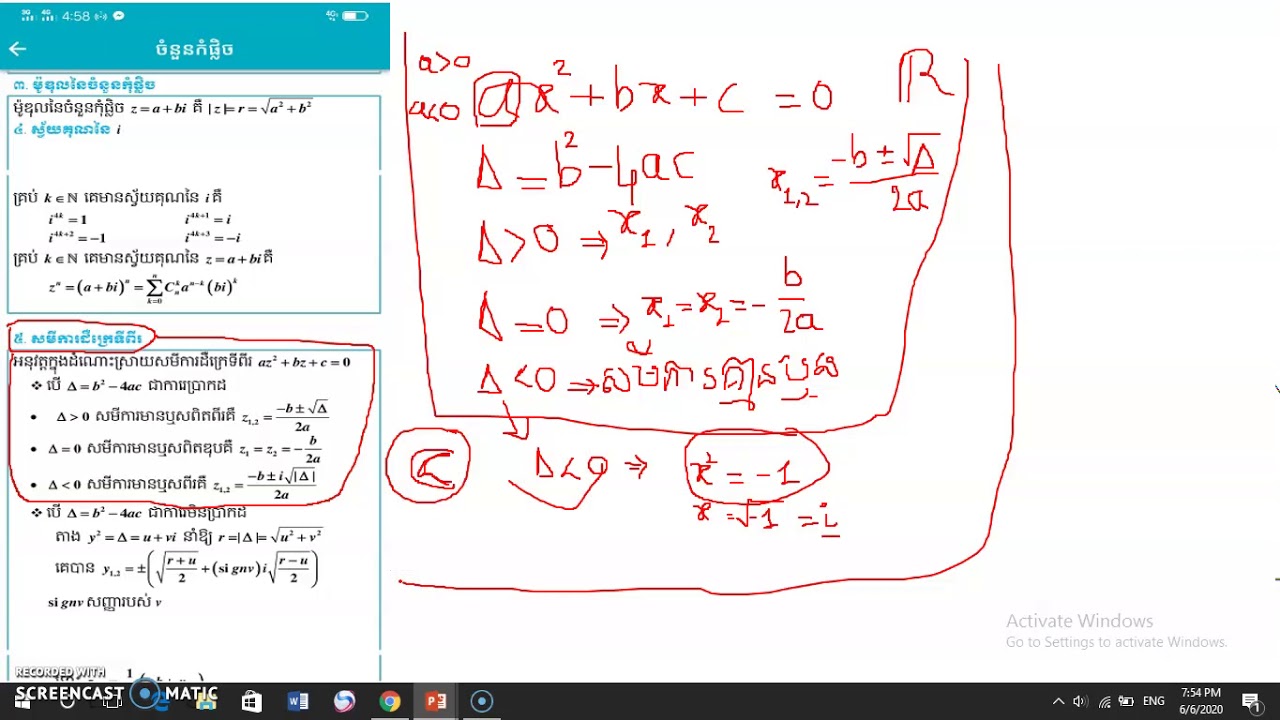 3G 4G 4:58 4G
ចំនួនកំផ្លិច
៣. ម៉ូឌុលនៃចំនួនកុំផ្លិច
ម៉ូឌុលនៃចំនួនកុំផ្លិច z = a + bi គឺ |z| = r = √(a² + b²)
៤. ស្វ័យគុណនៃ i
គ្រប់ k ∈ ℕ គេមានស្វ័យគុណនៃ i គឺ
i^{4k} = 1 i^{4k+1} = i
i^{4k+2} = −1 i^{4k+3} = −i
គ្រប់ k ∈ ℕ គេមានស្វ័យគុណនៃ z = a + bi គឺ
zⁿ = (a + bi)ⁿ = ∑_{k=0}^{n} C_n^k a^{n−k} (bi)^k
៥. សមីការដឺក្រេទីពីរ
អនុវត្តក្នុងដំណោះស្រាយសមីការដឺក្រេទីពីរ az² + bz + c = 0
❖ បើ Δ = b² − 4ac ជាការប្រាកដ
• Δ > 0 សមីការមានឬសពិតពីរគឺ z_{1,2} = (−b ± √Δ)/2a
• Δ = 0 សមីការមានឬសពិតឌុបគឺ z₁ = z₂ = −b/2a
• Δ < 0 សមីការមានឬសពីរគឺ z_{1,2} = (−b ± i√|Δ|)/2a
❖ បើ Δ = b² − 4ac ជាការមិនប្រាកដ
តាង y² = Δ = u + vi នាំឱ្យ r = |Δ| = √(u² + v²)
គេបាន y_{1,2} = ±(√((r + u)/2) + (signv) i√((r − u)/2))
signv សញ្ញារបស់ v
RECORDED WITH
SCREENCAST MATIC
a>0
a<0
ax² + bx + c = 0
ℝ
Δ = b² − 4ac
x_{1,2} = (−b ± √Δ)/2a
Δ > 0 ⇒ x₁, x₂
Δ = 0 ⇒ x₁ = x₂ = −b/2a
Δ < 0 ⇒ សមីការគ្មានឬស
ℂ
Δ < 0 ⇒ x² = −1
x = √−1 = i
Activate Windows
Go to Settings to activate Windows.
ENG
7:54 PM
6/6/2020
1